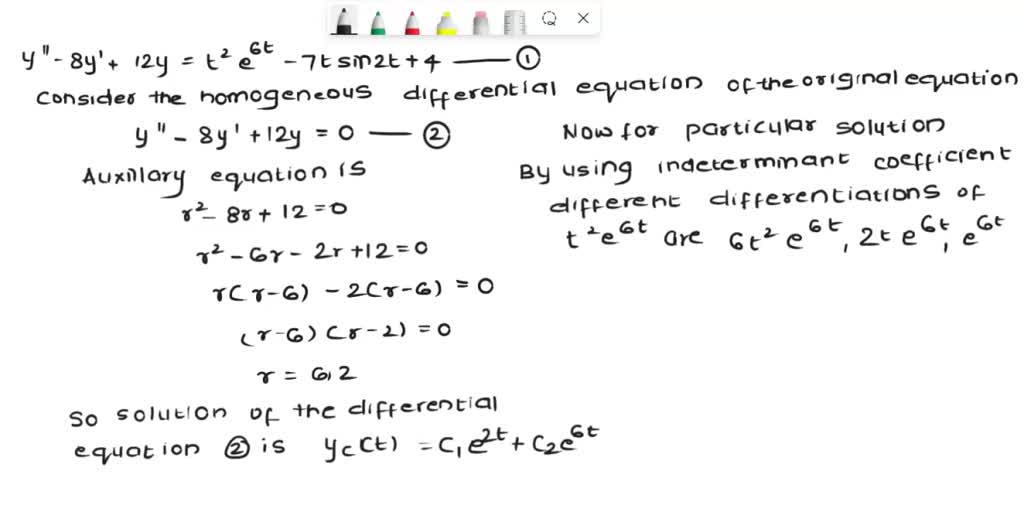 y'' - 8y' + 12y = t² e^6t - 7t sin2t + 4 —— ①
Consider the homogeneous differential equation of the original equation
y'' - 8y' + 12y = 0 — ②
Auxillary equation is
r² - 8r + 12 = 0
r² - 6r - 2r + 12 = 0
r(r-6) - 2(r-6) = 0
(r-6)(r-2) = 0
r = 6, 2
So solution of the differential
equation ② is yc(t) = C₁e^2t + C₂e^6t
Now for particular solution
By using indetermnant coefficient
different differentiations of
t²e^6t are 6t² e^6t, 2t e^6t, e^6t